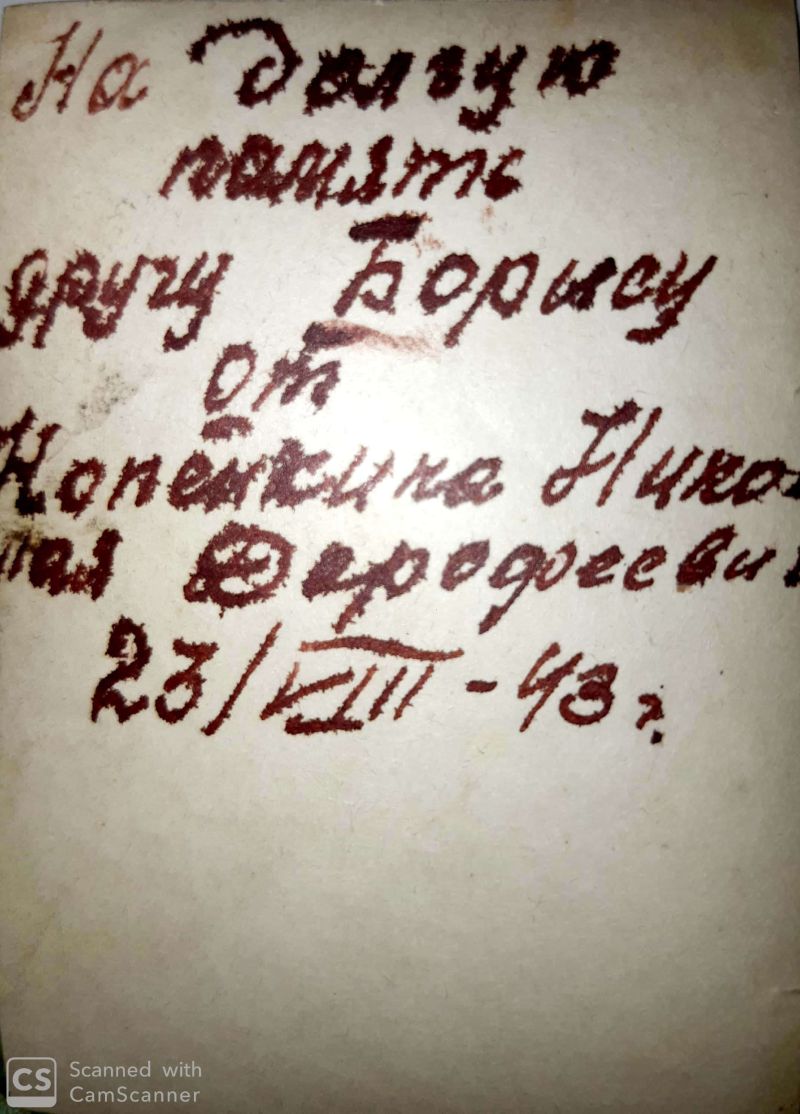 На долгую
память
другу Борису
от
Копёнкина Нико-
лая
23/VIII-43г.
Scanned with
CamScanner